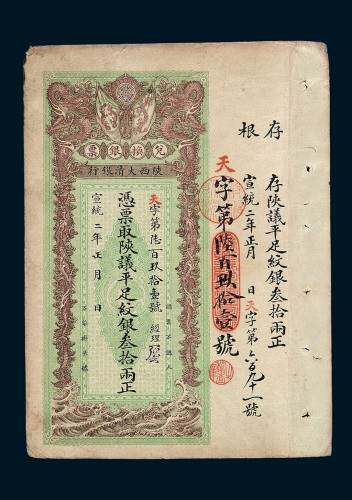 存根
存陝議平足紋銀叁拾兩正
宣統二年正月 日天字第六百九十一號
天字第陸百玖拾壹號
兌換銀票
陝西大清銀行
天字第陸百玖拾壹號 經理
憑票取陝議平足紋銀叁拾兩正
宣統二年正月 日